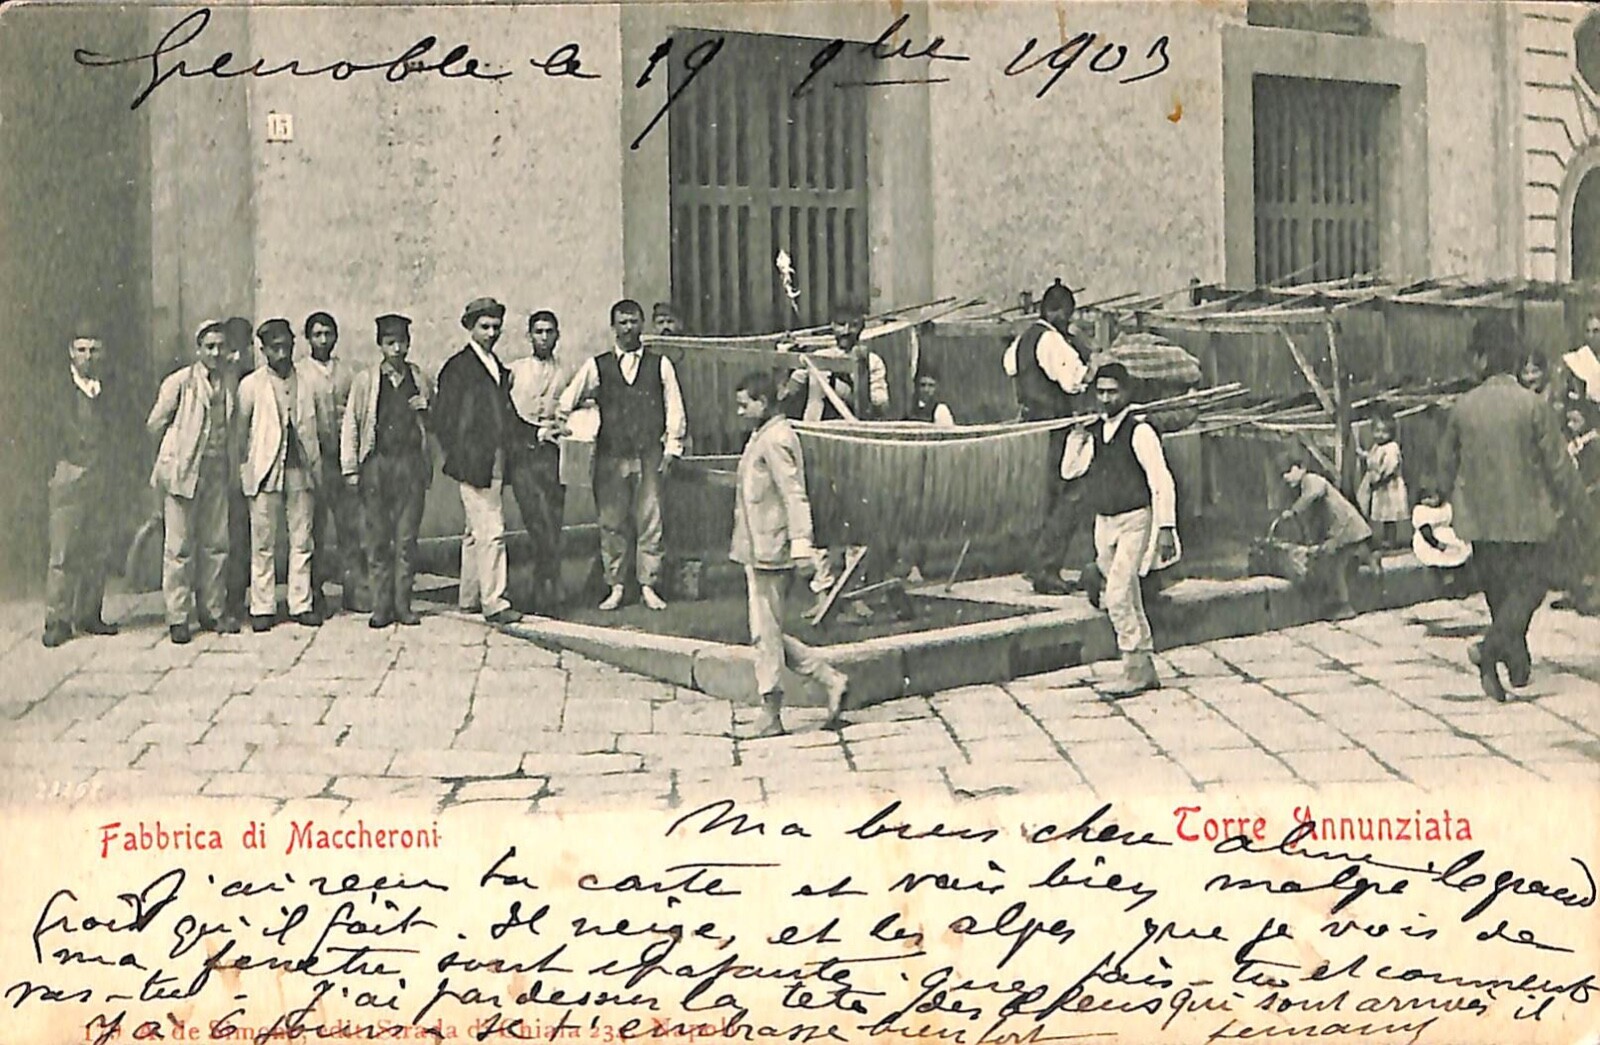 Grenoble le 19 9bre 1903
15
Fabbrica di Maccheroni
Torre Annunziata
Ma bien chere
J'ai recu ta carte et vais bien malgre le grand
froid qu'il fait. Il neige, et les alpes que je vois de
ma fenetre sont epatante. que fais-tu et comment
vas-tu. J'ai par dessus la tete des qui sont arrives il
y a 6 jours. Je t'embrasse bien fort
de Simone, edit. Strada di Chiaia 23 Napoli